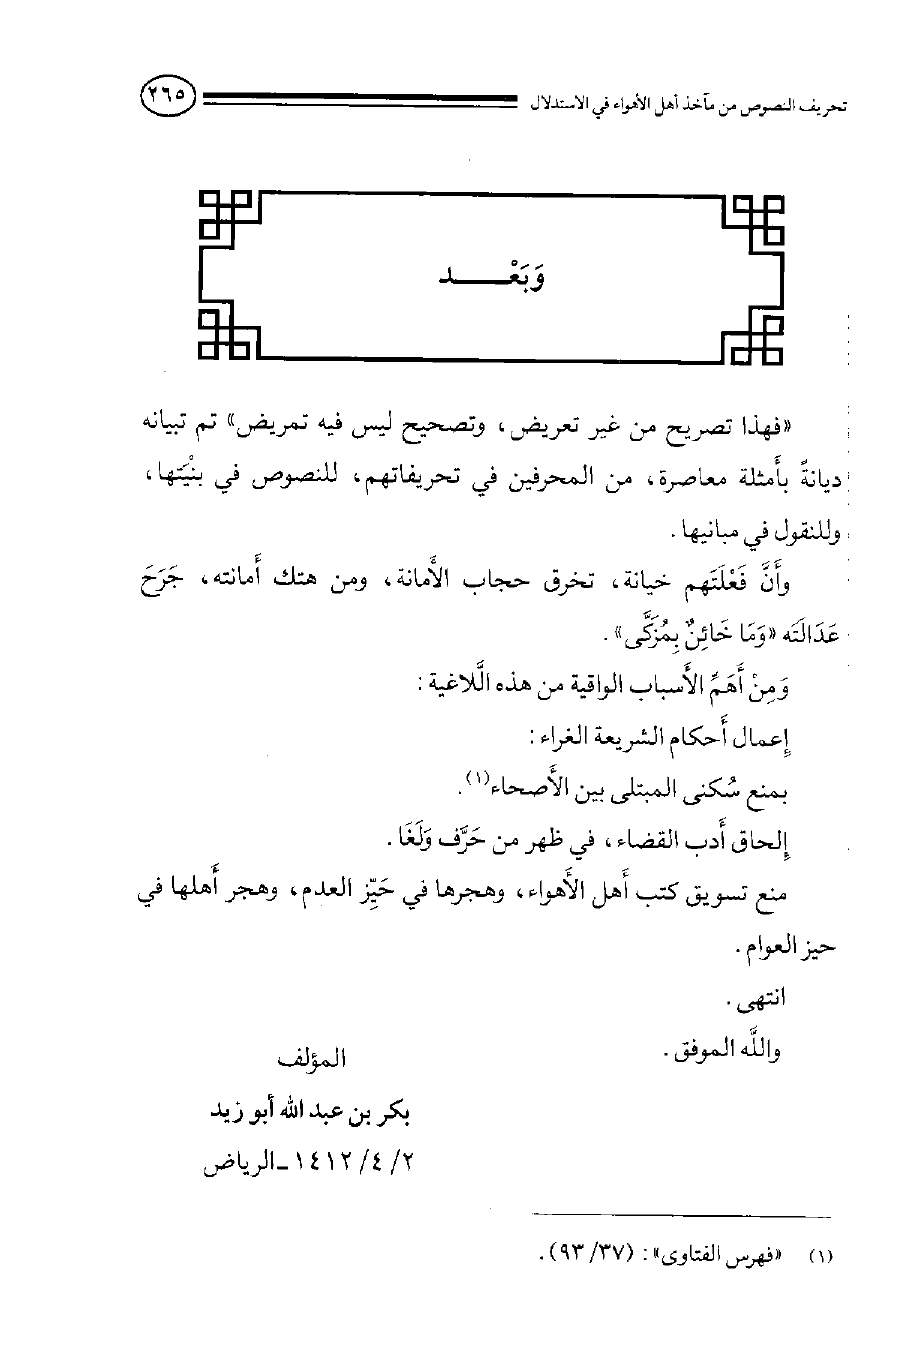 تحريف النصوص من مآخذ أهل الأهواء في الاستدلال ٢٦٥
وَبَعْـــــد
«فهذا تصريح من غير تعريض، وتصحيح ليس فيه تمريض» تم تبيانه
ديانةً بأمثلة معاصرة، من المحرفين في تحريفاتهم، للنصوص في بنْيَتها،
وللنقول في مبانيها.
وأنَّ فَعْلَتَهم خيانة، تخرق حجاب الأمانة، ومن هتك أمانته، جَرَحَ
عَدَالَتَه «وَمَا خَائِنٌ بِمُزَكَّى».
وَمِنْ أَهَمِّ الأسباب الواقية من هذه اللَّاغية:
إعمال أحكام الشريعة الغراء:
بمنع سُكنى المبتلى بين الأصحاء(١).
إلحاق أدب القضاء، في ظهر من حَرَّف وَلَغَا.
منع تسويق كتب أهل الأهواء، وهجرها في حَيِّز العدم، وهجر أهلها في
حيز العوام.
انتهى.
واللَّه الموفق.
المؤلف
بكر بن عبد الله أبو زيد
٢/ ٤/ ١٤١٢ ـ الرياض
(١) «فهرس الفتاوى»: (٣٧/ ٩٣).